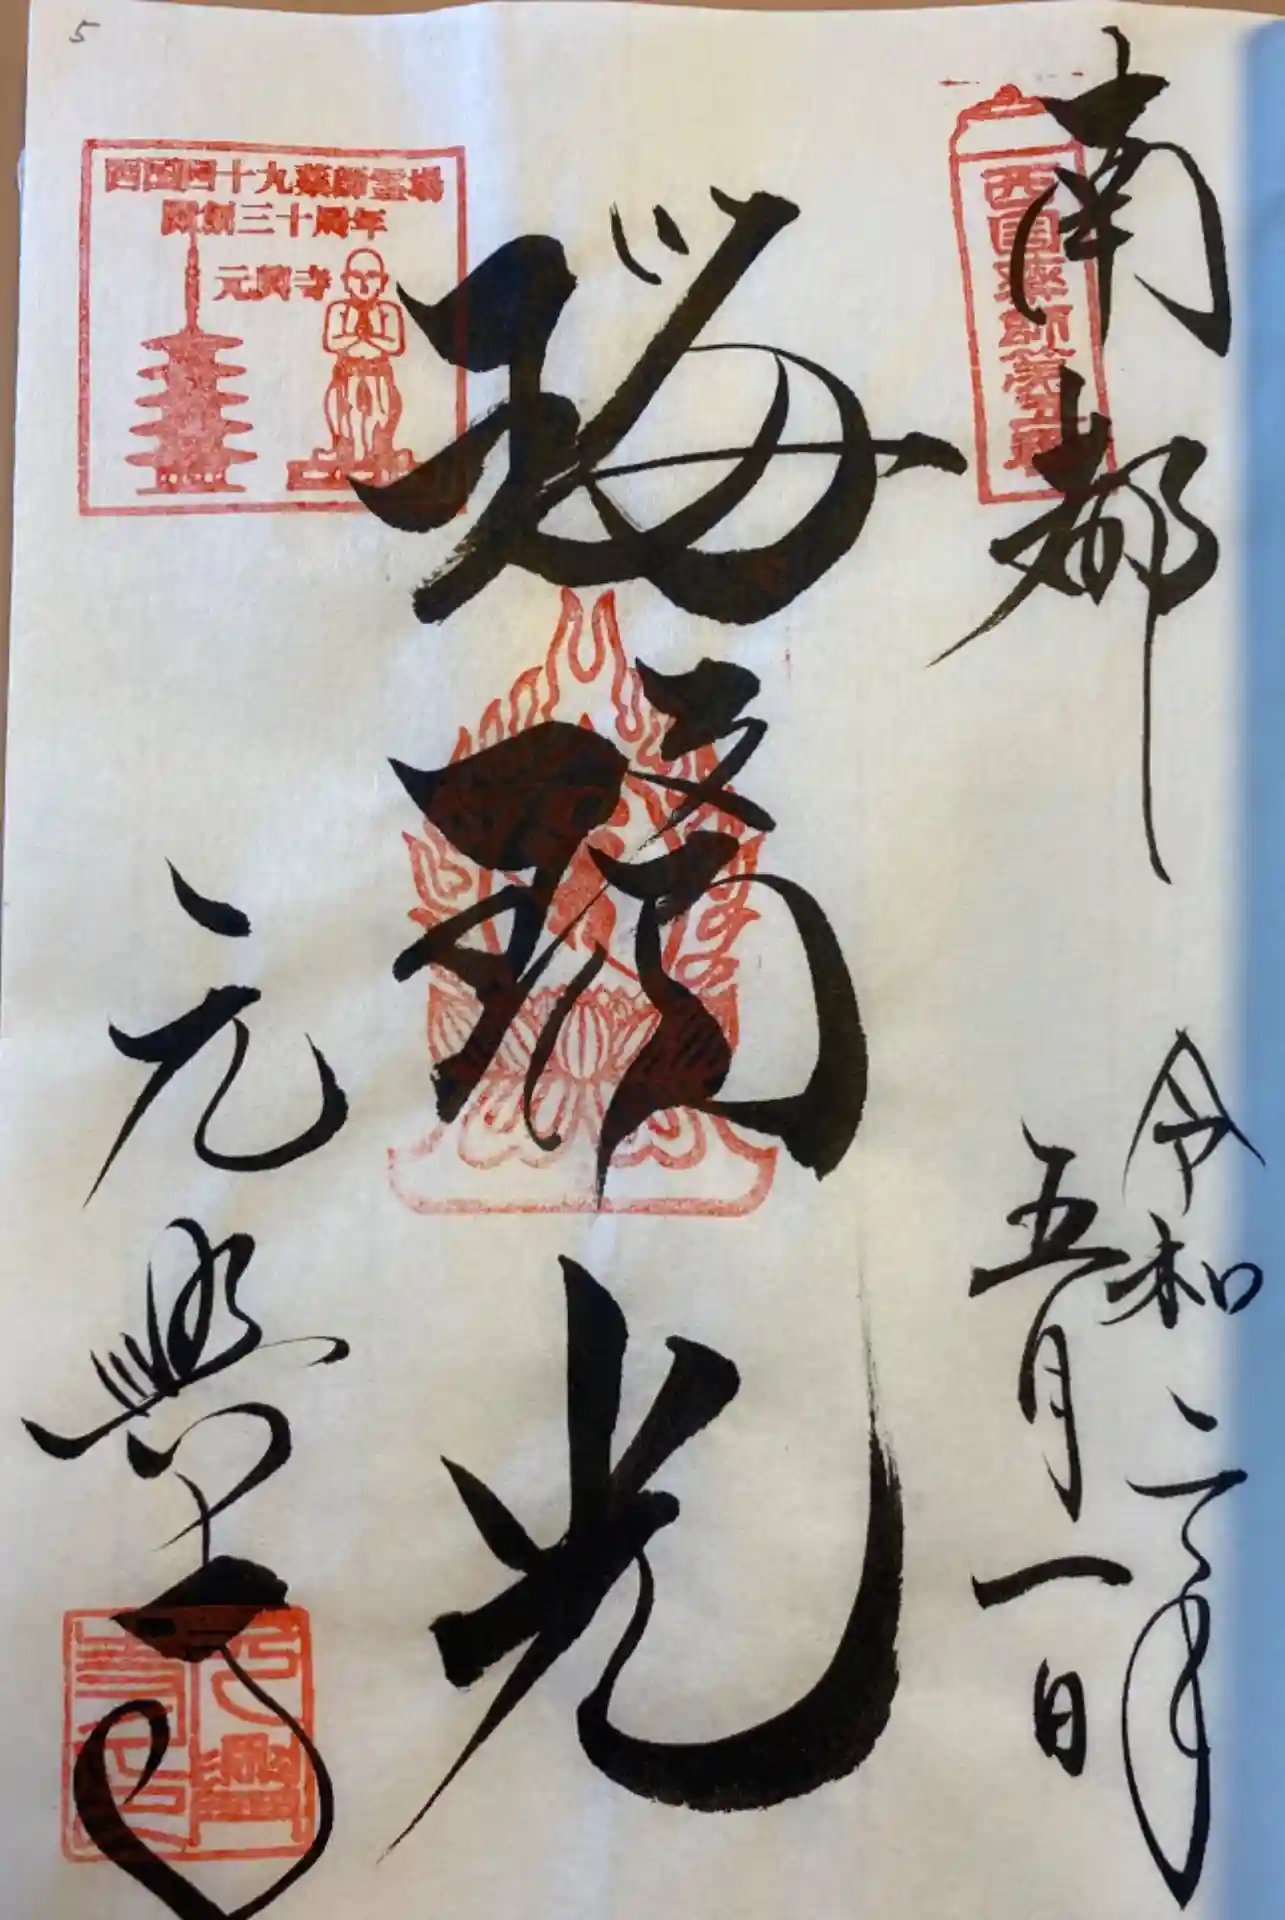 5
南都
西国薬師第五番
令和二年
五月一日
瑠璃光
西国四十九薬師霊場
開創三十周年
元興寺
元興寺
元興寺印